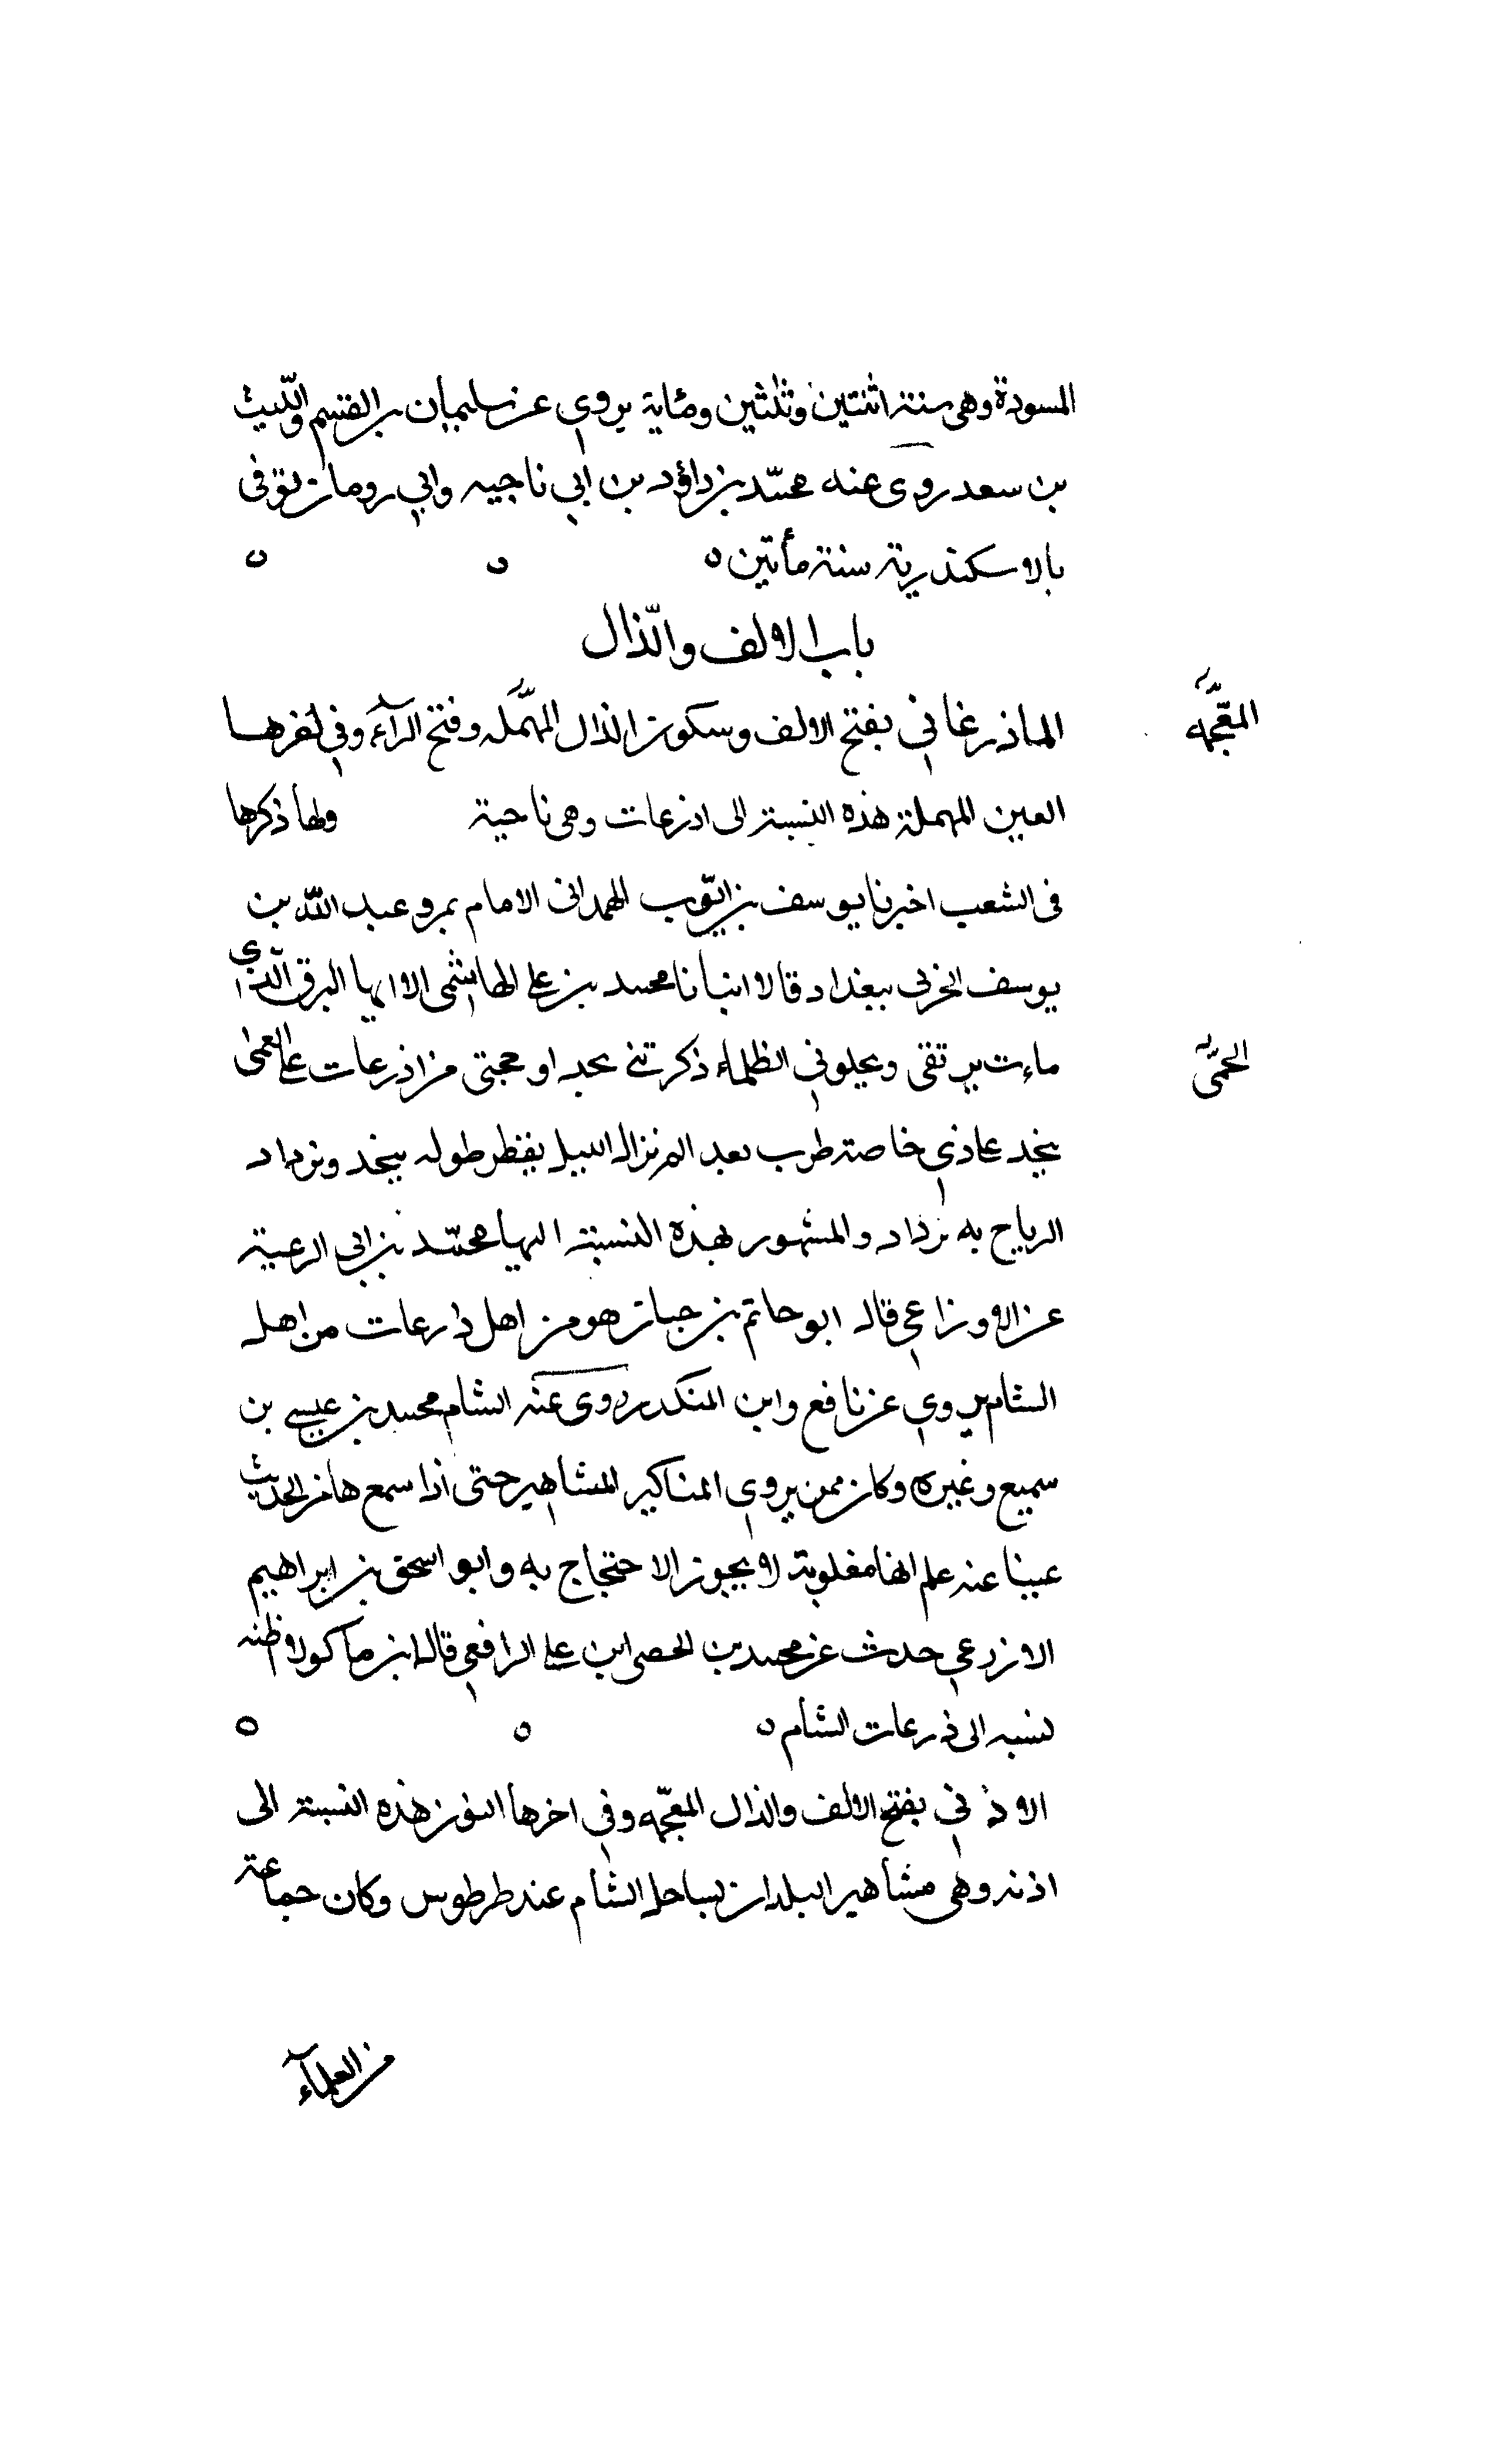 المسودة وهي سنة اثنتين وثلثين ومئاية يروي عن سليمان بن القسم والليث
بن سعد روى عنه محمد بن داؤد بن ابي ناجيه وابي رومان توفى
بالاسكندرية سنة مأتين ٥ ٥ ٥
باب الالف والذال
الماذرغاني بفتح الالف وسكون الذال المهمله وفتح الرآء وفي اخرها
المعجمه
العين المهملة هذه النسبة الى اذرعات وهي ناحية ولها ذكرها
فى الشعب اخبرنا يوسف بن ايوب الهمدانى الامام بمرو عبد الله بن
يوسف الخربى ببغداد قالا انبانا محمد بن على الهاشمى الا ايها البرق الذي
مات يرتقى ويجلوني الظلماء ذكرتني بحد او حجتي من اذرعات على العمى
الحمى
بنجد عاذي خاصة طرب بعد المرنزال الليل يفظر طوله بنجد ونزداد
الرياح به نرداد والمشهور بهذه النسبة اليها محمد بن ابى الرعبة
عن الاوزاعي قال ابو حاتم بن حبان هو من اهل ذارعات من اهل
الشام يروي عن نافع وابن المنكدر روى عنه الشام محمد بن عيسى بن
سميع وغيره وكان ممن يروي المناكير المشاهير حتى اذا سمعها من الحديث
عبينا عنه علم انها مغلوبة لا يجوز الاحتجاج به وابو اسحق بن ابراهيم
الازرعي حدث عن محمد بن الحصى ابن على الرافعي قال ابن ماكولا وظنه
نسبه الى ذرعات الشام ٥ ٥ ٥
الاذني بفتح الالف والذال المعجمه وفي اخرها النون هذه النسبة الى
اذنه وهي مشاهير البلدان بساحل الشام عند طرطوس وكان جماعة
من العلمآء